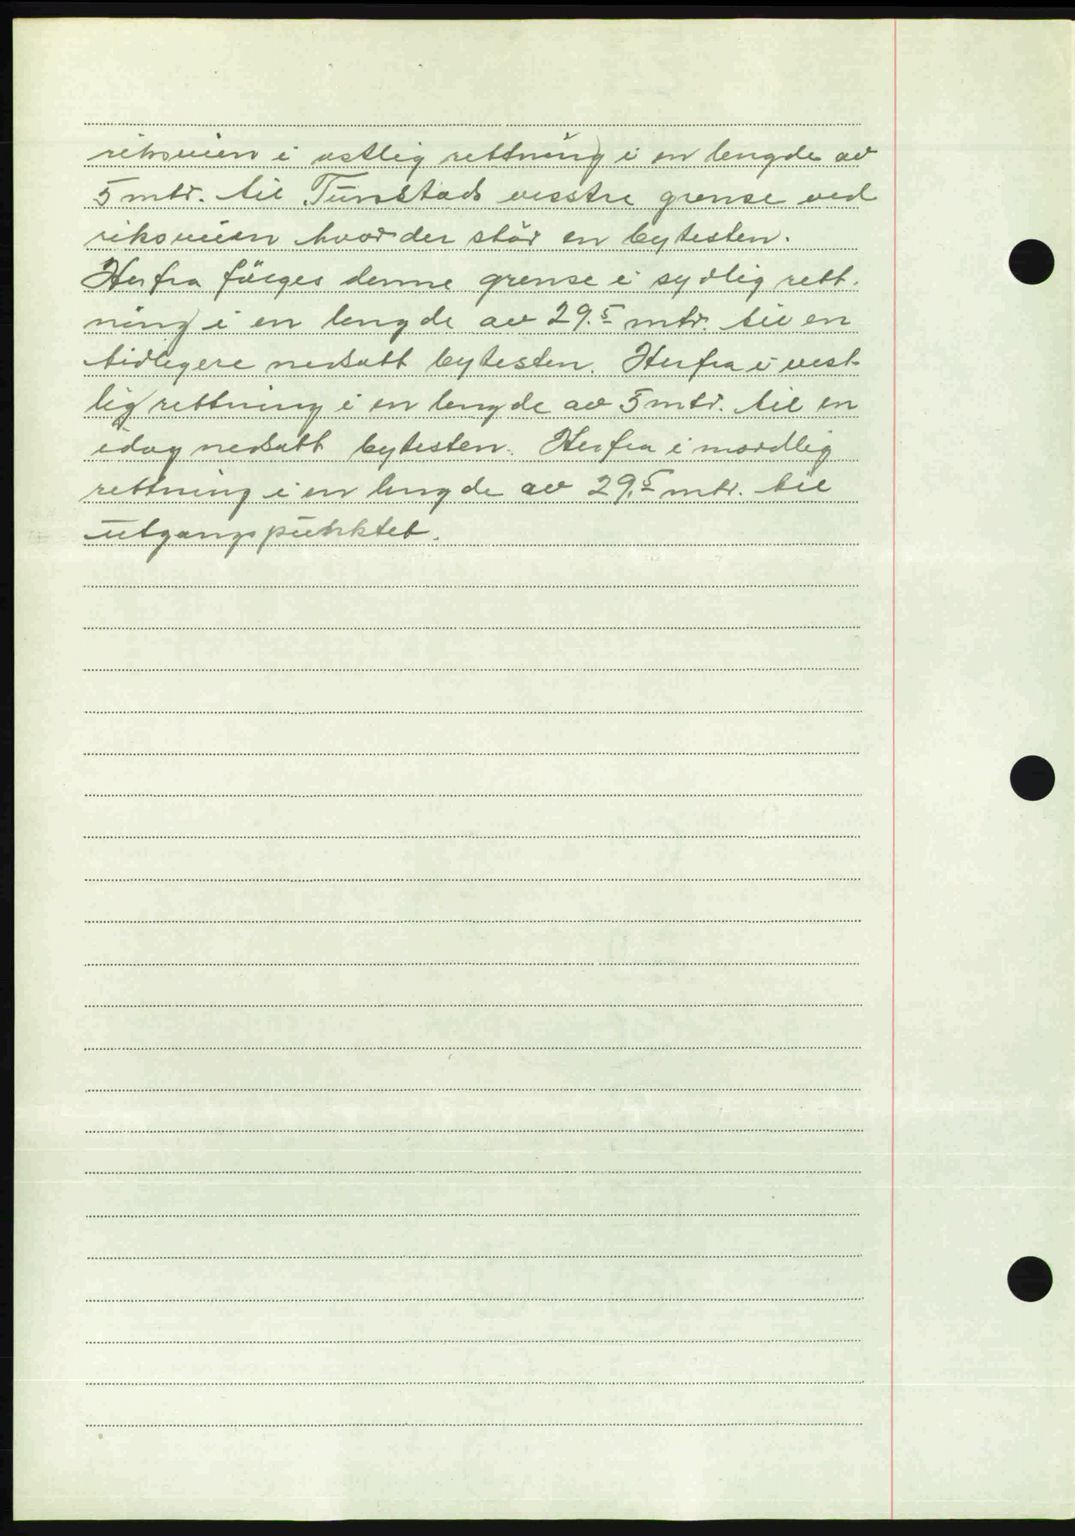 riksveien i østlig rettning i en lengde av
5 mtr. til Tunstads vestre grense ved
riksveien hvor der står en bytesten.
Herfra fölges denne grense i sydlig rett-
ning i en lengde av 29.5 mtr. til en
tidligere nedsatt bytesten. Herfra i vest-
lig rettning i en lengde av 5 mtr. til en
idag nedsatt bytesten. Herfra i nordlig
rettning i en lengde av 29.5 mtr. til
utgangspunktet.